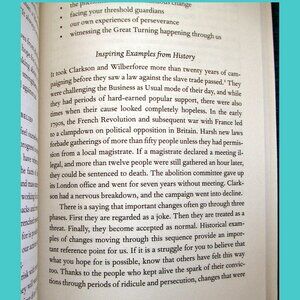 facing your threshold guardians
our own experiences of perseverance
witnessing the Great Turning happening through us
Inspiring Examples from History
It took Clarkson and Wilberforce more than twenty years of cam-
paigning before they saw a law against the slave trade passed. They
were challenging the Business as Usual mode of their day, and while
they had periods of hard-earned popular support, there were also
times when their cause looked completely hopeless. In the early
1790s, the French Revolution and subsequent war with France led
to a clampdown on political opposition in Britain. Harsh new laws
forbade gatherings of more than fifty people unless they had permis-
sion from a local magistrate. If a magistrate declared a meeting il-
legal, and more than twelve people were still gathered an hour later,
they could be sentenced to death. The abolition committee gave up
its London office and went for seven years without meeting. Clark-
son had a nervous breakdown, and the campaign went into decline.
There is a saying that important changes often go through three
phases. First they are regarded as a joke. Then they are treated as a
threat. Finally, they become accepted as normal. Historical exam-
ples of changes moving through this sequence provide an impor-
tant reference point for us. If it is a struggle for you to believe that
what you hope for is possible, know that others have felt this way
too. Thanks to the people who kept alive the spark of their convic-
tions through periods of ridicule and persecution, changes that were